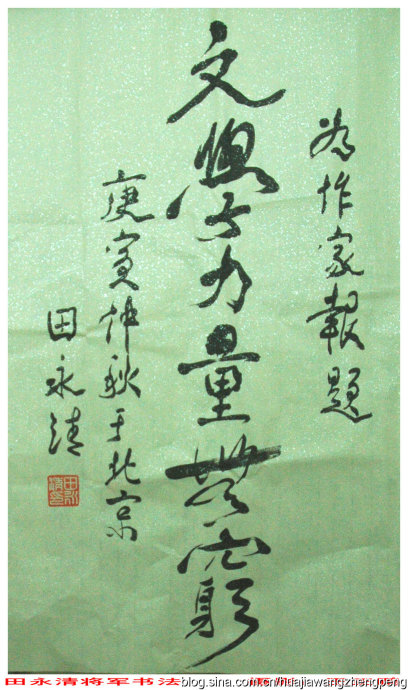 为作家報題
文學力量無窮
庚寅仲秋于北京
田永清
田永清将军书法
blog.sina.com.cn/huajiawangzhengpeng